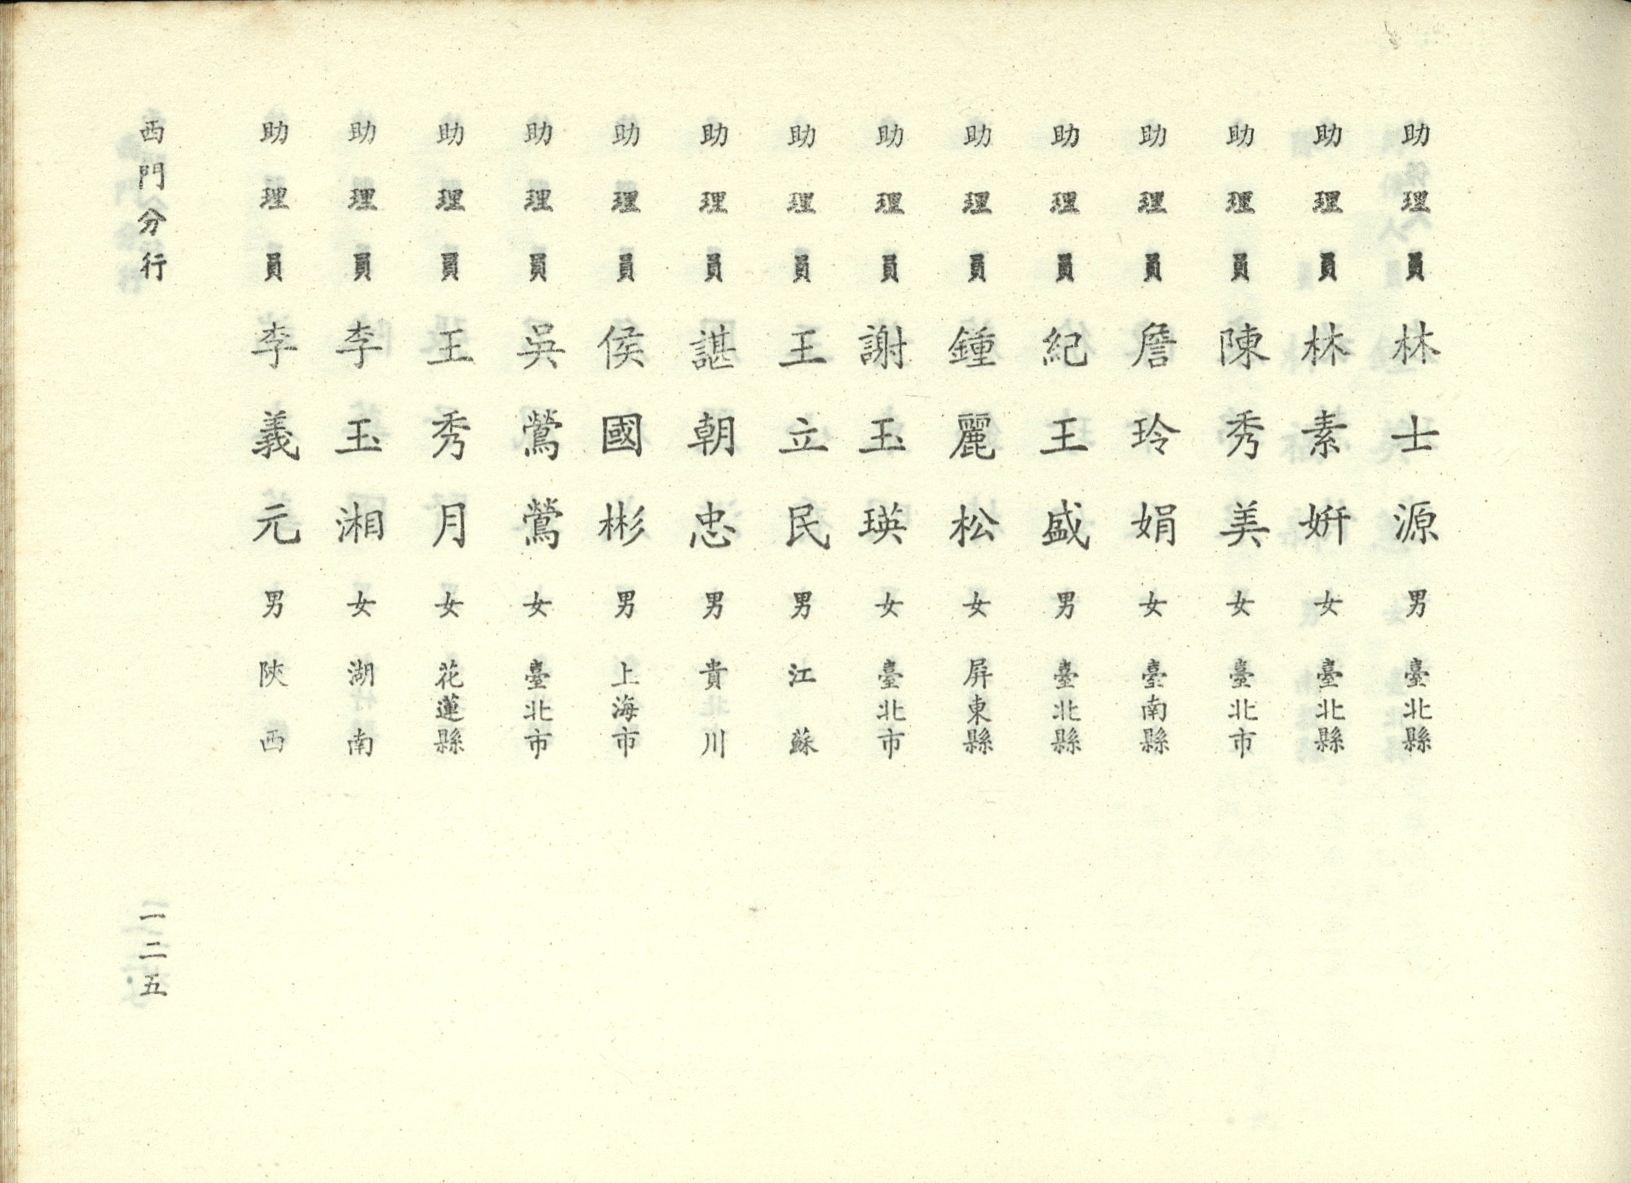 助理員林士源男臺北縣
助理員林素妍女臺北縣
助理員陳秀美女臺北市
助理員詹玲娟女臺南縣
助理員紀王盛男臺北縣
助理員鍾麗松女屏東縣
助理員謝玉瑛女臺北市
助理員王立民男江蘇
助理員諶朝忠男貴川
助理員侯國彬男上海市
助理員吳鶯鶯女臺北市
助理員王秀月女花蓮縣
助理員李玉湘女湖南
助理員李義元男陝西
西門分行
一二五